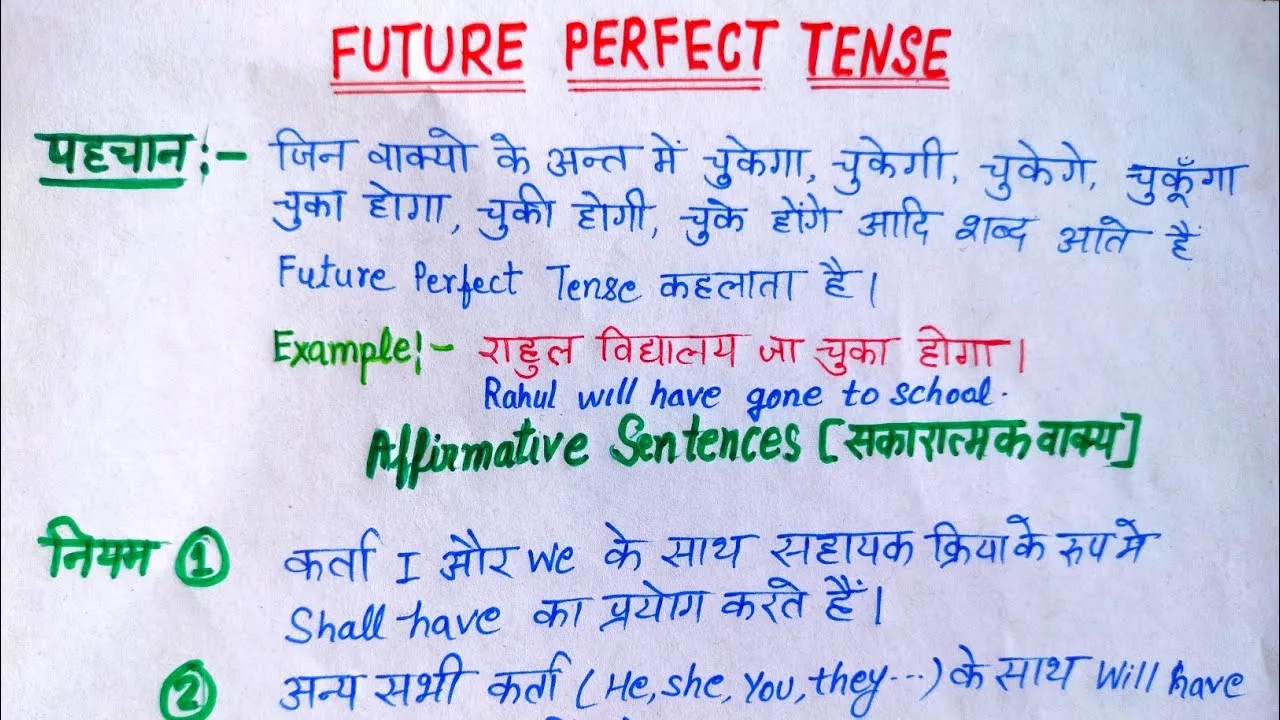 FUTURE PERFECT TENSE
पहचान :- जिन वाक्यो के अन्त में चुकेगा, चुकेगी, चुकेगे, चुकूँगा
चुका होगा, चुकी होगी, चुके होंगे आदि शब्द आते हैं
Future Perfect Tense कहलाता है।
Example:- राहुल विद्यालय जा चुका होगा।
Rahul will have gone to school.
Affirmative Sentences [सकारात्मक वाक्य]
नियम ① कर्ता I और We के साथ सहायक क्रिया के रुप मे
Shall have का प्रयोग करते हैं।
② अन्य सभी कर्ता (He, she, You, they...) के साथ Will have